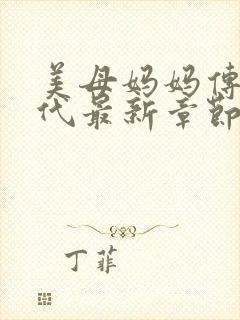 美母妈妈傅
代最新章节
丁菲